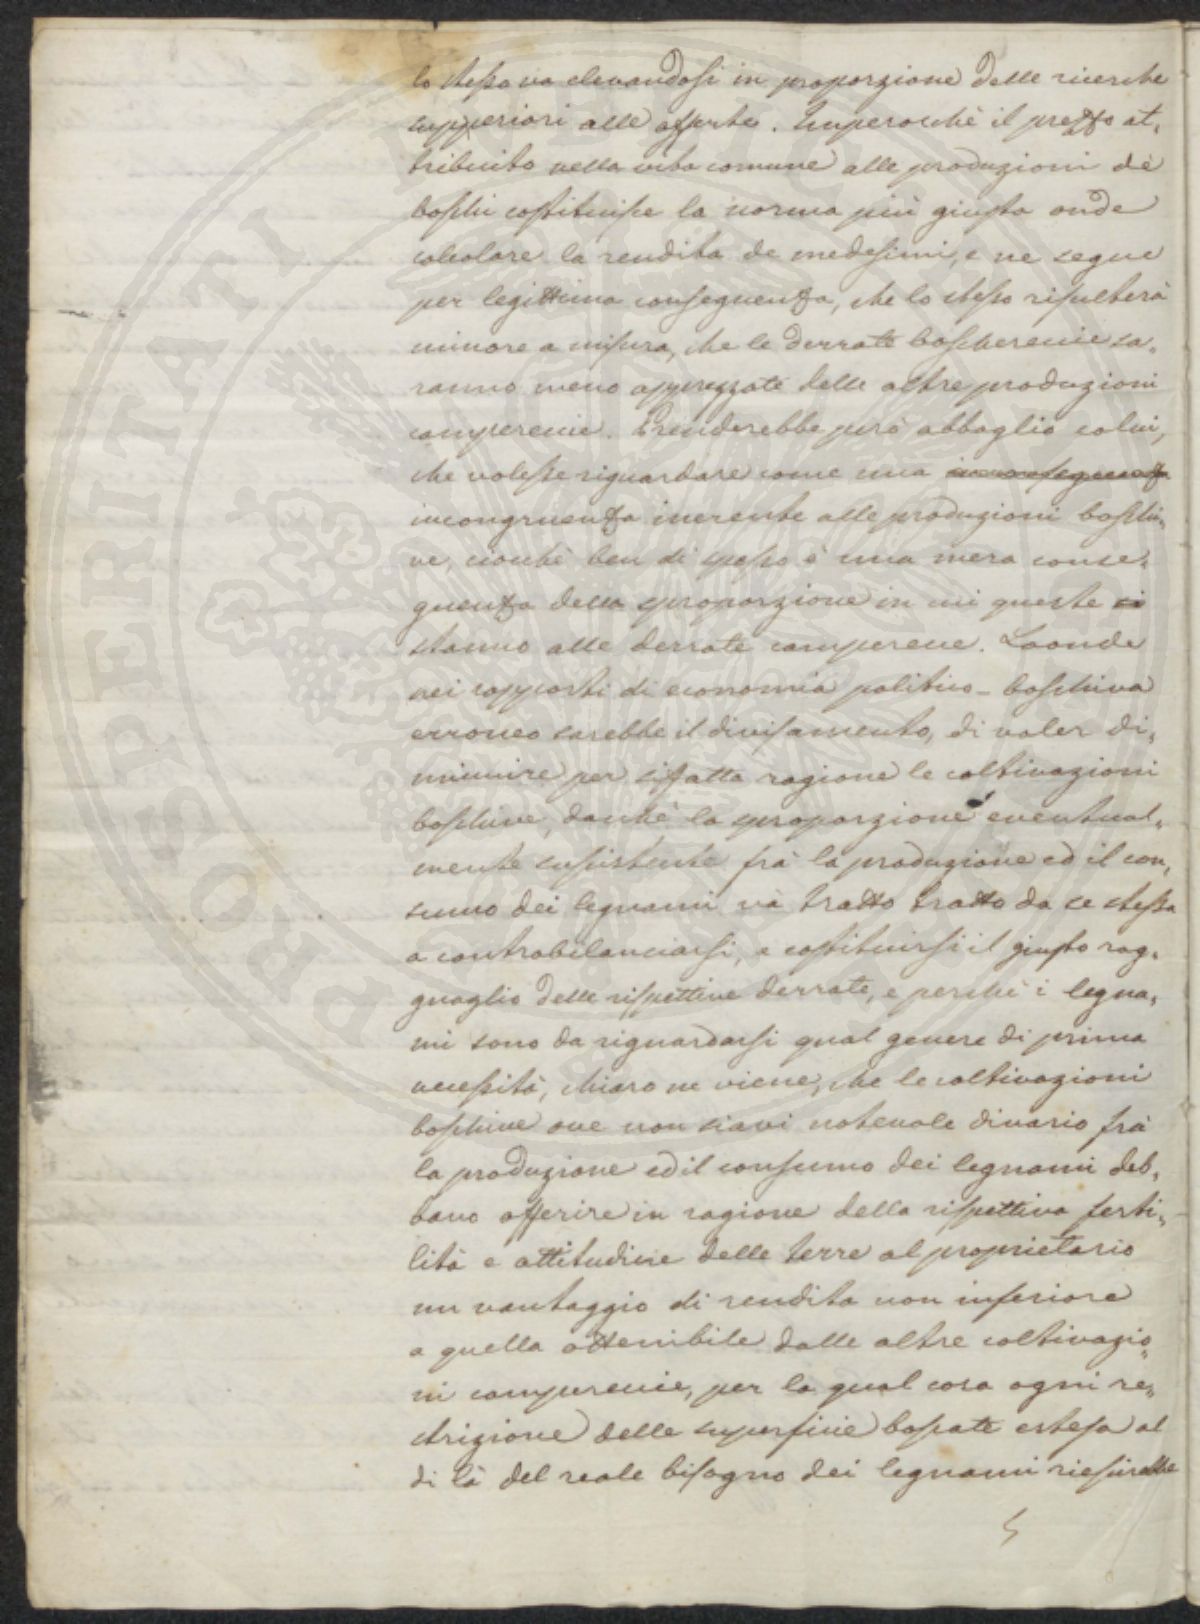 lo stesso va elevandosi in proporzione delle ricerche
superiori alle offerte. Imperocchè il prezzo at,
tribuito nella vita comune alle produzioni de
boschi costituisce la norma più giusta onde
calcolare la rendita de medesimi, e ne segue
per legittima conseguenza, che lo stesso risulterà
minore a misura, che le derrate boscherecie sa,
ranno meno apprezzate delle altre produzioni
camperecie. Prenderebbe però abbaglio colui,
che volesse riguardare come una inconseguenza
incongruenza inerente alle produzioni boschi,
ve, ciocchè ben di spesso è una mera conse,
guenza della sproporzione in cui queste si
stanno alle derrate camperecie. Laonde
nei rapporti di economia politico-boschiva
erroneo sarebbe il divisamento, di voler di,
minuire per siffatta ragione le coltivazioni
boschive, dachè la sproporzione eventual,
mente sussistente frà la produzione ed il con,
sumo dei legnami và tratto tratto da se stessa
a controbilanciarsi, e costituirsi il giusto rag,
guaglio delle rispettive derrate, e perchè i legna,
mi sono da riguardarsi qual genere di prima
necessità, chiaro ne viene, che le coltivazioni
boschive ove non siavi notevole divario frà
la produzione ed il consumo dei legnami deb,
bano offerire in ragione della rispettiva ferti,
lità e attitudine delle terre al proprietario
un vantaggio di rendita non inferiore
a quella ottenibile dalle altre coltivazio,
ni camperecie, per la qual cosa ogni re,
strizione delle superficie boscate estesa al
di là del reale bisogno dei legnami riescirebbe
PROSPERITATI